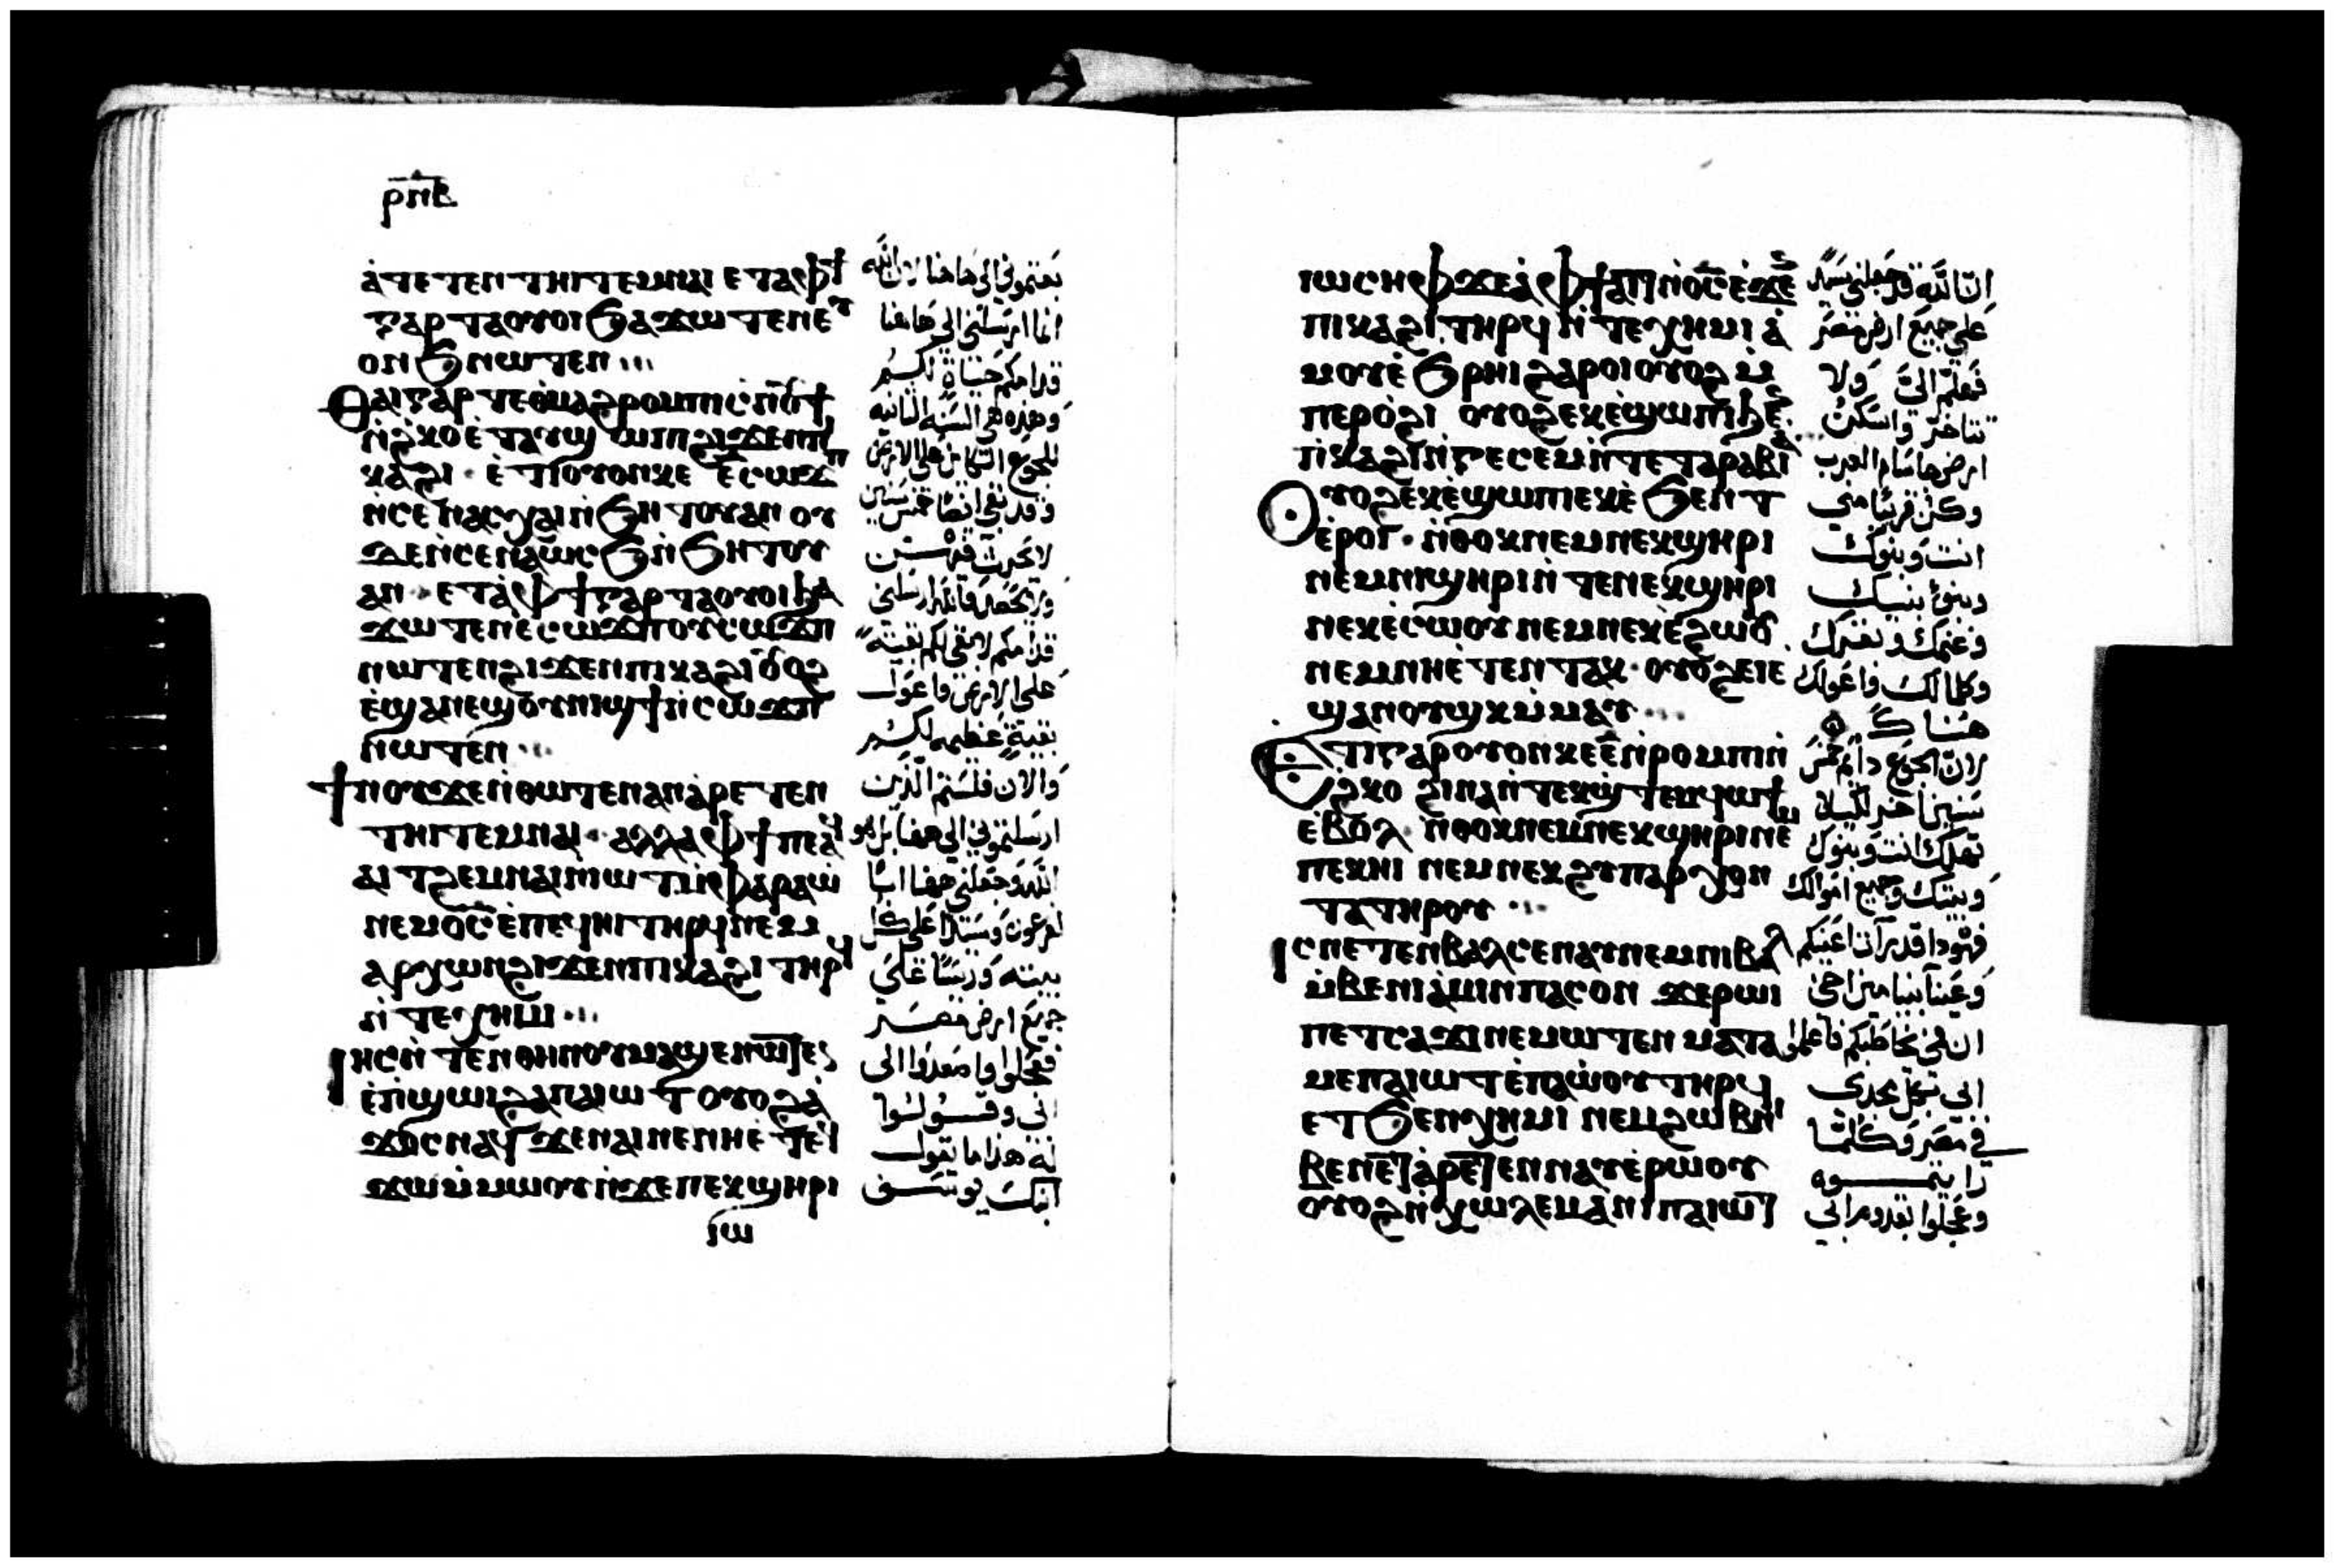 ⲣⲛⲃ
ⲁ̀ⲧⲉⲧⲉⲛⲧⲏⲓⲧ ⲉⲙⲛⲁⲓ ⲉⲧⲁⲫϯ
ⲅⲁⲣ ⲧⲁⲟⲩⲟⲓ ϧⲁϫⲱⲧⲉⲛ ⲉⲩ
ⲱⲛϧ ⲛⲱⲧⲉⲛ
Ⲑⲁⲓ ⲅⲁⲣ ⲧⲉ
ⲛ̀ϩⲕⲟ ⲉ̀ⲧⲁⲩϣⲱⲡⲓ ϩⲓϫⲉⲛ ⲡⲓ
ⲕⲁϩⲓ · ⲉ̀ⲧⲓ ⲟⲩⲟⲛ ⲕⲉ
ⲛ̀ⲥⲉⲛⲁⲥⲭⲁⲓ ⲛ̀ϧⲏⲧⲟⲩ ⲁⲛ ⲟⲩ
ⲇⲉ ⲛ̀ⲥⲉⲛⲁⲱⲥϧ ⲛ̀ϧⲏⲧⲟⲩ
ⲁⲛ · ⲉⲧⲁ̀ⲫϯ ⲅⲁⲣ ⲧⲁⲟⲩⲟⲓ ϧⲁ
ϫⲱⲧⲉⲛ ⲉ̀ⲥⲱϫⲡ ⲟⲩⲥⲱϫⲡ
ⲛⲱⲧⲉⲛ ϩⲓϫⲉⲛ ⲡⲓⲕⲁϩⲓ ⲟⲩⲟϩ
ⲉ̀ϣⲁⲛⲉϣ ⲟⲩⲛⲓϣϯ ⲛ̀ⲥⲱϫⲡ
ⲛⲱⲧⲉⲛ
Ϯⲛⲟⲩ ϫⲉ ⲛ̀ⲑⲱⲧⲉⲛ ⲁⲛ ⲁ̀ⲣⲉⲧⲉⲛ
ⲧⲏⲓⲧ ⲉⲙⲛⲁⲓ · ⲁⲗⲗⲁ ⲫϯ ⲡⲉ ⲁϥ
ⲁⲓⲧ ϩⲉⲙⲛⲁⲓ ⲛ̀ⲓⲱⲧ ⲙ̀ⲫⲁⲣⲁⲱ̀
ⲛⲉⲙ ⲟ̅ⲥ̅ ⲉ̀ⲡⲉϥⲏⲓ ⲧⲏⲣϥ ⲛⲉⲙ
ⲁⲣⲭⲱⲛ ϩⲓϫⲉⲛ ⲡⲓⲕⲁϩⲓ ⲧⲏⲣϥ
ⲛ̀ⲧⲉⲭⲏⲙⲓ
Ⲓⲏⲥ ⲛ̀ⲧⲉⲛ ⲑⲏⲛⲟⲩ ⲙⲁϣⲉⲛⲱⲧⲉⲛ
ⲉ̀ⲡ̀ϣⲱⲓ ϩⲁ ⲡⲁⲓⲱⲧ ⲟⲩⲟϩ ⲁ̀
ϫⲟⲥ ⲛⲁϥ ϫⲉ ⲛⲁⲓ ⲛⲉ ⲛⲏ ⲉ̀ⲧⲉϥ
ϫⲱ ⲙ̀ⲙⲱⲟⲩ ⲛ̀ϫⲉ ⲡⲉⲕϣⲏⲣⲓ
ⲓⲱ
بعتموني الى هاهنا لان الله
انما ارسلني الى هاهنا
قدامكم حياة لكم
وهذه هي السنه الثانيه
للجوع الكائن على الارض
وقد بقي ايضا خمس سنين
لا تحرث فيهن
ولا تحصد فالله ارسلني
قدامكم لابقي لكم بقية
على الارض واعول
بقية عظيمه لكم
والان فلستم الذين
ارسلتموني الى ههنا بل هو
الله وجعلني ههنا ابا
لفرعون وسيدا على كل
بيته ورئيسا على
جميع ارض مصر
فعجلوا واصعدوا الى
ابي وقولوا
له هذا ما يقول
ابنك يوسف
ⲓⲱⲥⲏⲫ ϫⲉ ⲁ̀ⲫϯ ⲁⲓⲧ ⲛ̀ⲟ̅ⲥ̅ ⲉ̀ϫⲉⲛ
ⲡⲓⲕⲁϩⲓ ⲧⲏⲣϥ ⲛ̀ⲧⲉⲭⲏⲙⲓ ⲁ̀
ⲙⲟⲩ ⲉ̀ϧⲣⲏⲓ ϩⲁⲣⲟⲓ ⲟⲩⲟϩ ⲙ̀
ⲡⲉⲣⲟ̀ϩⲓ ⲟⲩⲟϩ ⲉⲕⲉ̀ϣⲱⲡⲓ ϧⲉⲛ
ⲡ̀ⲕⲁϩⲓ ⲛ̀ⲅⲉⲥⲉⲙ ⲛ̀ⲧⲉ ϯⲁⲣⲁⲃⲓⲁ̀
Ⲟⲩⲟϩ ⲉⲕⲉ̀ϣⲱⲡⲓ ⲉⲕⲉ̀ϧⲉⲛⲧ
ⲉ̀ⲣⲟⲓ · ⲛ̀ⲑⲟⲕ ⲛⲉⲙ ⲛⲉⲕϣⲏⲣⲓ
ⲛⲉⲙ ⲛⲓϣⲏⲣⲓ ⲛ̀ⲧⲉ ⲛⲉⲕϣⲏⲣⲓ
ⲛⲉⲕⲉ̀ⲥⲱⲟⲩ ⲛⲉⲙ ⲛⲉⲕⲉ̀ϩⲱⲟⲩ
ⲛⲉⲙ ⲛⲏ ⲉ̀ⲧⲉⲛⲧⲁⲕ · ⲟⲩⲟϩ ⲉⲓⲉ̀
ϣⲁⲛⲟⲩϣⲕ ⲙ̀ⲙⲁⲩ
Ⲉⲧⲓ ⲅⲁⲣ ⲟⲩⲟⲛ ⲕⲉ ⲉ̅ ⲛ̀ⲣⲟⲙⲡⲓ ⲛ̀
ϩⲕⲟ ϩⲓⲛⲁ ⲛ̀ⲧⲉⲕϣ̀ⲧⲉⲙϥⲱϯ
ⲉⲃⲟⲗ ⲛ̀ⲑⲟⲕ ⲛⲉⲙ ⲛⲉⲕϣⲏⲣⲓ ⲛⲉⲙ
ⲡⲉⲕⲏⲓ ⲛⲉⲙ ⲛⲉⲕϩⲩⲡⲁⲣⲭⲟⲛ
ⲧⲁ ⲧⲏⲣⲟⲩ
Ⲓⲥ ⲛⲉⲧⲉⲛⲃⲁⲗ ⲥⲉⲛⲁⲩ ⲛⲉⲙ ⲛⲓⲃⲁⲗ
ⲙ̀ⲃⲉⲛⲓⲁ̀ⲙⲓⲛ ⲡⲁⲥⲟⲛ ϫⲉ ⲣⲱⲓ
ⲡⲉⲧⲥⲁϫⲓ ⲛⲉⲙⲱⲧⲉⲛ ⲙⲁⲧⲁ
ⲙⲉ ⲡⲁⲓⲱⲧ ⲉ̀ⲡⲁⲱ̀ⲟⲩ ⲧⲏⲣϥ
ⲉⲧϧⲉⲛ ⲭⲏⲙⲓ ⲛⲉⲙ ϩⲱⲃ ⲛⲓ
ⲃⲉⲛ ⲉⲧⲁ̀ⲣⲉⲧⲉⲛ ⲛⲁⲩ ⲉ̀ⲣⲱⲟⲩ
ⲟⲩⲟϩ ⲛ̀ⲭⲱⲗⲉⲙ ⲁ̀ⲛⲓ ⲡⲁⲓⲱⲧ
ان الله قد جعلني سيدا
على جميع ارض مصر
فهلم الي ولا
تتاخر واسكن
ارض جاسام العرب
وكن قريبا مني
انت وبنوك
وبنو بنيك
وغنمك وبقرك
وكلما لك فاعولك
هناك
لان الجوع دائم خمس
سنين اخر لكيلا
تهلك انت وبنوك
وبيتك وجميع اموالك
فهوذا قد رات اعينكم
وعينا بنيامين اخي
ان فمي يخاطبكم فاعلموا
ابي بكل مجدي
في مصر وكلما
رايتموه
وعجلوا بقدوم ابي